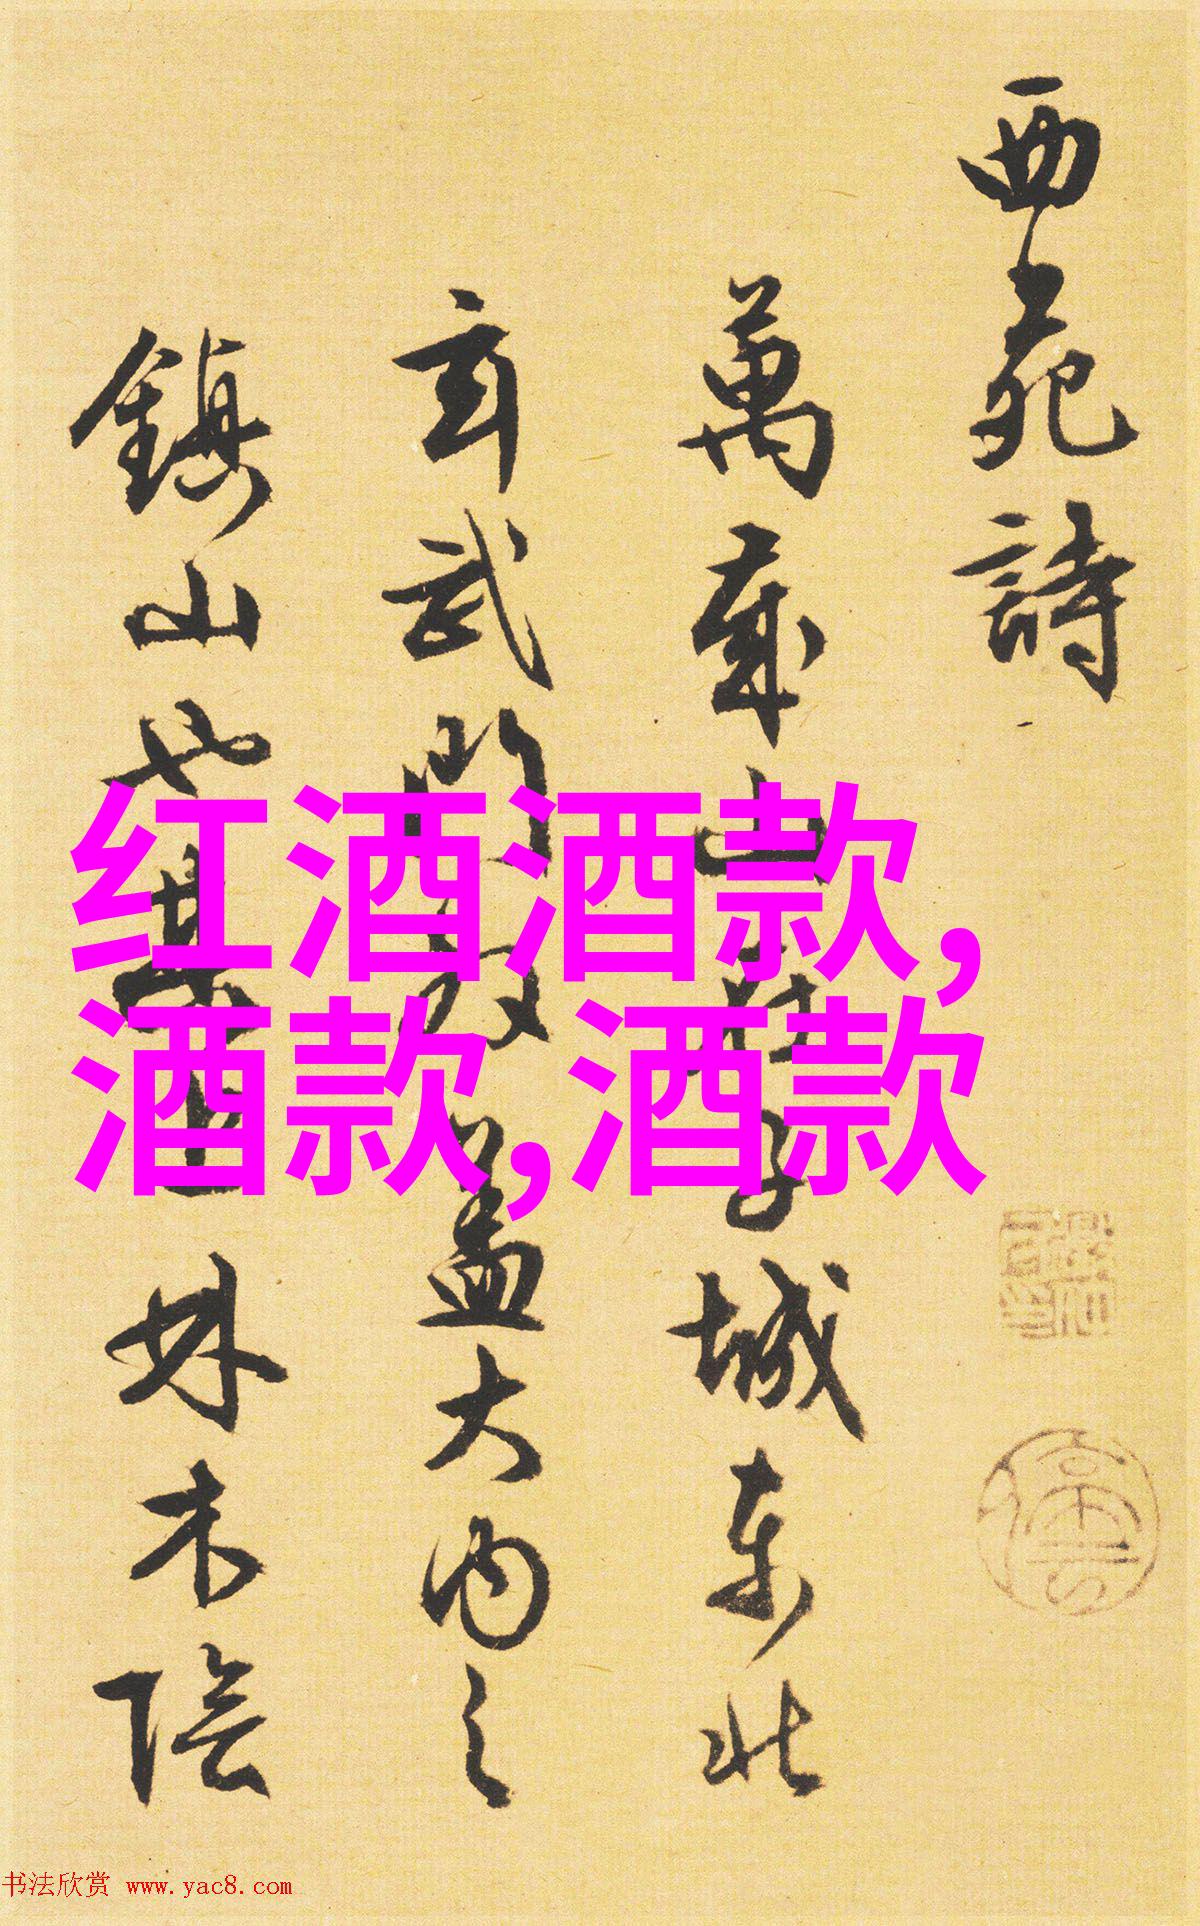 西苑詩
萬歲山在子城東北
玄武門外更盖大内之
鎮山也其上林木陰
红酒酒款,
酒款,酒款
书法欣赏 www.yac8.com